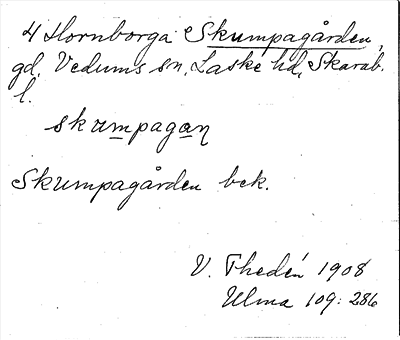 4 Hornborga Skumpagården,
gd, Vedums sn, Laske hd, Skarab.
l.
skumpagan
Skumpagården bek.
V. Thedén 1908
Ulma 109: 286